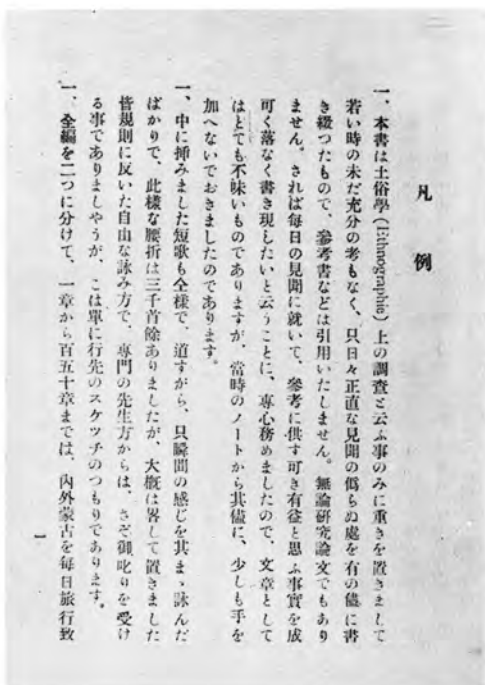 凡例
一、本書は土俗學(Ethnographie)上の調査と云ふ事のみに重きを置きまして
若い時の未だ充分の考もなく、只日々正直な見聞の僞らぬ處を有の儘に書
き綴つたもので、參考書などは引用いたしません。無論研究論文でもあり
ません。されば毎日の見聞に就いて、參考に供す可き有益と思ふ事實を成
可く落なく書き現したいと云うことに、專心務めましたので、文章として
はとても不味いものでありますが、當時のノートから其儘に、少しも手を
加へないでおきましたのであります。
一、中に挿みました短歌も仝樣で、道すがら、只瞬間の感じを其まゝ詠んだ
ばかりで、此樣な腰折は三千首餘ありましたが、大概は畧して置きました
皆規則に反いた自由な詠み方で、專門の先生方からは、さぞ御叱りを受け
る事でありましやうが、こは單に行先のスケツチのつもりであります。
一、全編を二つに分けて、一章から百五十章までは、内外蒙古を毎日旅行致
一